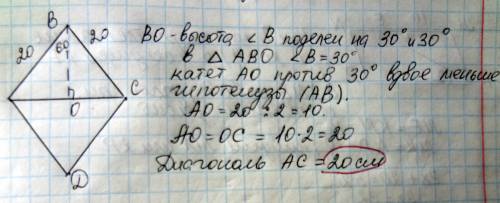 B
20
60°
20
C
O
D
BO - высота ∠B поделен на 30° и 30°
в △ ABO ∠B = 30°
катет AO против 30° вдвое меньше
гипотенузы (AB).
AO = 20 : 2 = 10.
AO = OC = 10·2 = 20
Диагональ AC = 20 см